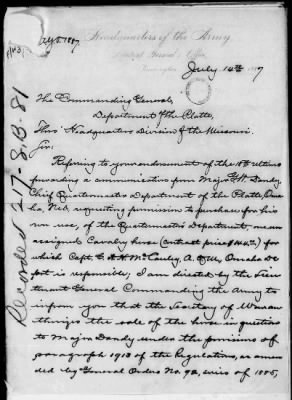 Headquarters of the Army
Adjutant General's Office
Washington
July 14th
The Commanding General,
Department of the Platte,
Thro' Headquarters Division of the Missouri.
Sir:
Refering to your endorsement of the 18th ultimo
forwarding a communication from Major G. B. Dandy
Chief Quartermaster Department of the Platte, Oma
ha, Neb. requesting permission to purchase for his
own use, of the Quartermaster Department, an un
assigned Cavalry horse (contract price $144.00) for
which Capt. C. A. H. McCauley, A. Q. M., Omaha De
pot is responsible; I am directed by the Lieu
tenant General Commanding the Army to
inform you that the Secretary of War au
thorizes the sale of the horse in question
to Major Dandy under the provisions of
paragraph 1913 of the Regulations, as amen
ded by General Orders No. 92, series of 1885,
Recorded 217-8.B-81